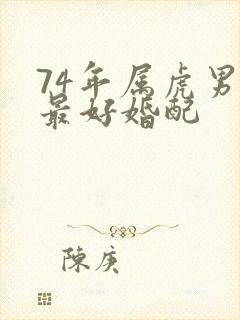 74年属虎男
最好婚配
陳庚